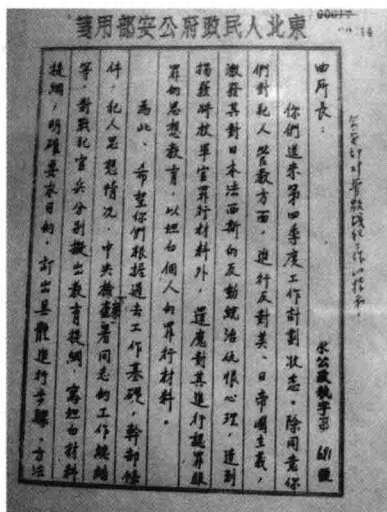 00017
東北人民政府公安部用箋
东公政执字第 691 號
曲所长：
你們送来第四季度工作計劃收悉。除同意你
們對犯人管教方面，進行反對美、日帝國主義，
激發其對日本法西斯的反動統治仇恨心理，達到
揭發將校軍官罪行材料外，還應對其進行認罪服
罪的思想教育，以坦白個人的罪行材料。
為此、希望你們根据過去工作基礎，幹部條
件，犯人思想情况，中央檢查署同志的工作總結
等，對戰犯官兵分别擬出教育提綱，寫坦白材料
提綱，明確要求目的，訂出具體進行步驟、方法